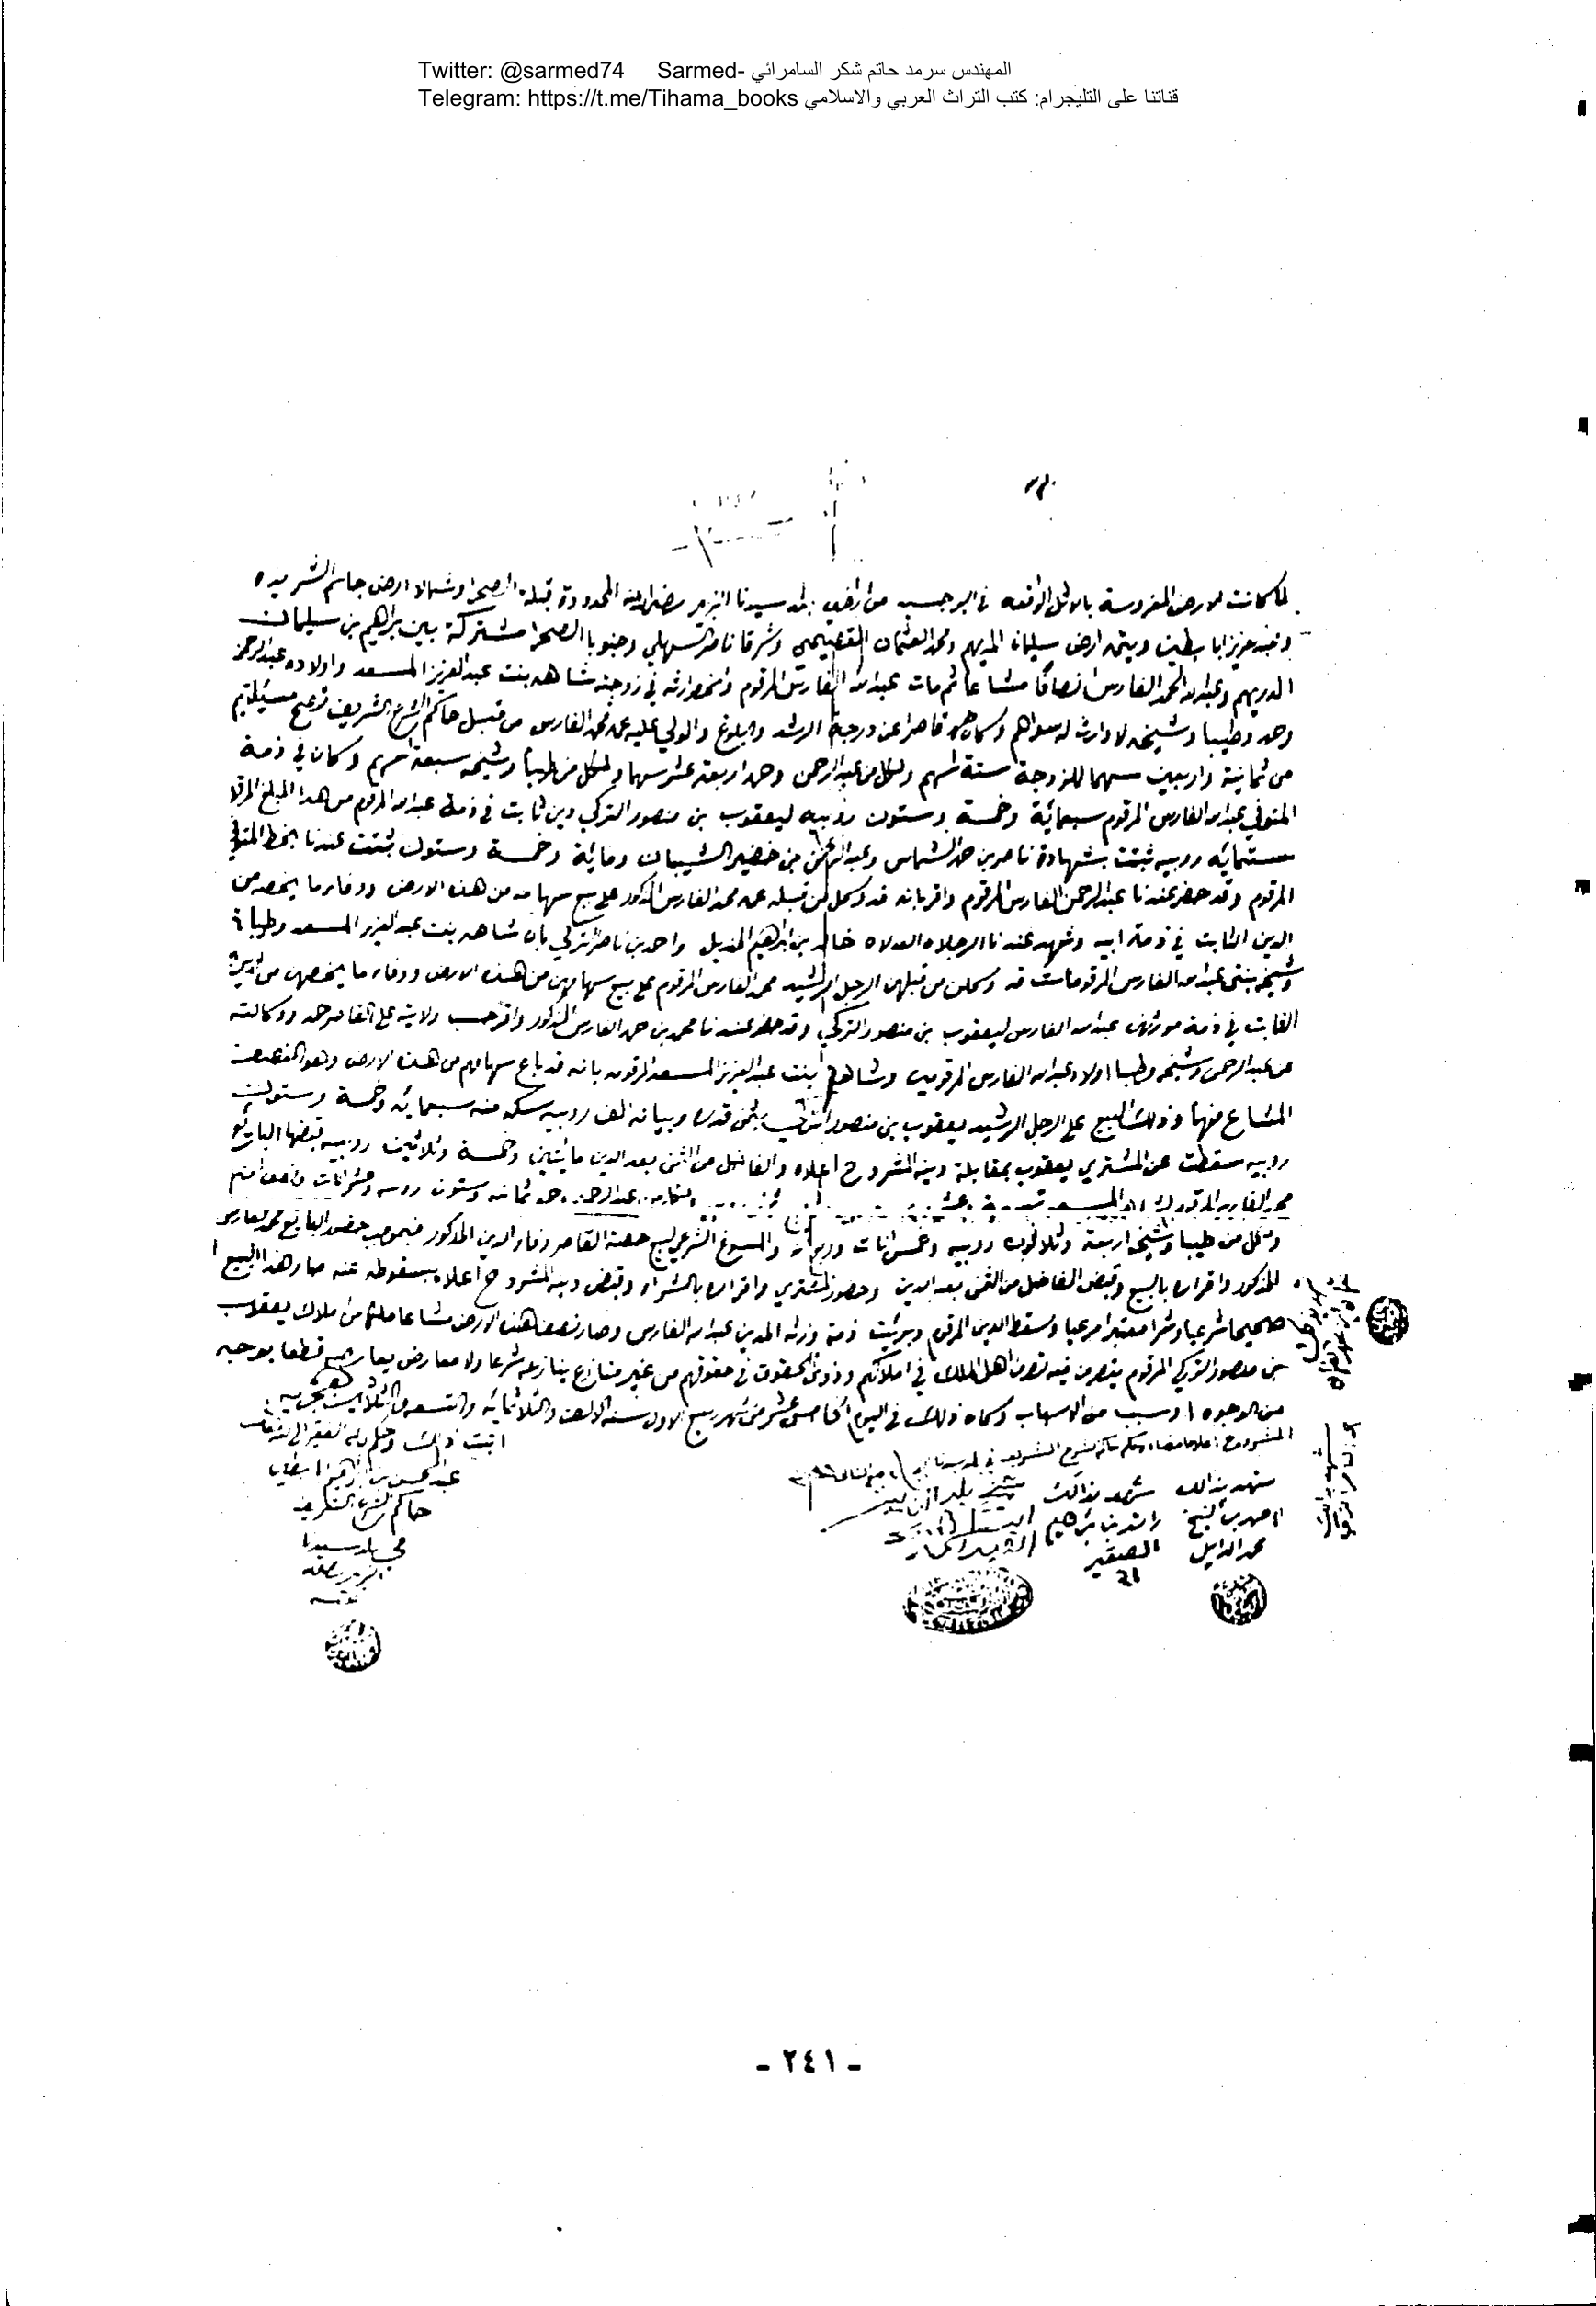 Twitter: @sarmed74 Sarmed- المهندس سرمد حاتم شكر السامرائي
Telegram: https://t.me/Tihama_books قناتنا على التليجرام: كتب التراث العربي والاسلامي
لما كانت الارض المغروسة بالاثل الواقعه في البرجسيه من اراضي بلد سيدنا الزبير رضي الله عنه المحدودة قبلة الصحرا وشمالا ارض جاسم الشريده
ارض سليمان الدريهم ومحمد العثمان القصيمي وشرقا ناصر السهلي وجنوبا الصحرا مشتركة بين ابراهيم بن سليمان
الدريهم وعبدالله الحمد الفارس انصافا مشاعا ثم مات عبدالله الفارس المرقوم وانحصر ارثه في زوجته شاهه بنت عبدالعزيز المسعد واولاده عبدالرحمن
وحمد وطيبا وشيخه لا وارث له سواهم وكان حمد قاصرا عن درجة الرشد والبلوغ والولي عليه عمه محمد الفارس من قبل حاكم الشرع الشريف تصح مسئلتهم
من ثمانية واربعين سهما للزوجة ستة اسهم ولكل من عبدالرحمن وحمد اربعة عشر سهما ولكل من طيبا وشيخه سبعة اسهم وكان في ذمة
المتوفي عبدالله الفارس المرقوم سبعمائة وخمسة وستون روبيه ليعقوب بن منصور التركي دين ثابت في ذمة عبدالله المرقوم من هذا المبلغ المرقوم
ستمائه روبيه ثبتت بشهادة ناصر بن حمد الشماس وعبدالرحمن بن خضير الشيبان ومائة وخمسة وستون ثبتت عندنا بخط المتوفي
المرقوم وقد حضر عندنا عبدالرحمن الفارس المرقوم واقر بانه قد وكل من قبله عمه محمد الفارس المذكور على بيع سهامه من هذه الارض ووفاء ما يخصه من
الدين الثابت في ذمة ابيه وشهد عندنا الرجلان العدلان خالد بن ابراهيم المنديل واحمد بن ناصر التركي بان شاهه بنت عبدالعزيز المسعد وطيبا
وشيخه بنتي عبدالله الفارس المرقومات قد وكلن من قبلهن الرجل الرشيد محمد الفارس المرقوم على بيع سهامهن من هذه الارض ووفاء ما يخصهن من الدين
الثابت في ذمة مورثهن عبدالله الفارس ليعقوب بن منصور التركي وقد حضر عندنا محمد بن حمد الفارس المذكور واقر حسب ولايته على القاصر حمد ووكالته
عن عبدالرحمن وشيخه وطيبا اولاد عبدالله الفارس المرقومين وشاهه بنت عبدالعزيز المسعد المرقومه بانه قد باع سهامهم من هذه الارض وهو النصف
المشاع منها وذلك البيع على الرجل الرشيد يعقوب بن منصور التركي بثمن قدره وبيانه الف روبيه سكه منه سبعمائه وخمسة وستون
روبيه سقطت عن المشتري يعقوب بمقابلة دينه المشروح اعلاه والفاضل من الثمن بعد الدين مائتين وخمسة وثلاثين روبيه قبضها البايع
محمد الفارس المرقوم ثمانيه وستون روبيه
ولكل من طيبا وشيخه اربعة وثلاثون روبيه وخمس انات والمسوغ الشرعي لبيع حصة القاصر وفاء الدين المذكور فبموجب حضور البايع محمد الفارس
المذكور واقراره بالبيع وقبض الفاضل من الثمن بعد الدين وحضور المشتري واقراره بالشراء وقبض دينه المشروح اعلاه بسقوطه عنه صار هذا البيع
صحيحا شرعيا وشرا معتبرا مرعيا وسقط الدين المرقوم وبرئت ذمة ورثة المدين عبدالله الفارس وصار نصف هذه الارض مشاعا ملكا من املاك يعقوب
بن منصور التركي المرقوم يتصرف فيه تصرف اهل الملك في املاكهم وذوي الحقوق في حقوقهم من غير منازع ينازعه شرعا ولا معارض يعارضه قطعا بوجه
من الوجوه او سبب من الاسباب وكان ذلك في اليوم الخامس عشر من شهر ربيع الاول سنة الالف والثلاثمائه والتسعه والثلاثين هجريه
اثبت ذلك وحكم به الفقير الى الله تعالى
عبدالمحسن بن ابراهيم ابابطين
حاكم الشرع الشريف
في بلد سيدنا
الزبير
شهد بذلك
احمد بن الشيخ
محمد الدايل
شهد بذلك
راشد بن ابراهيم
الصقير
شيخ بلد الزبير
شهد بذلك
- ٢٤١ -